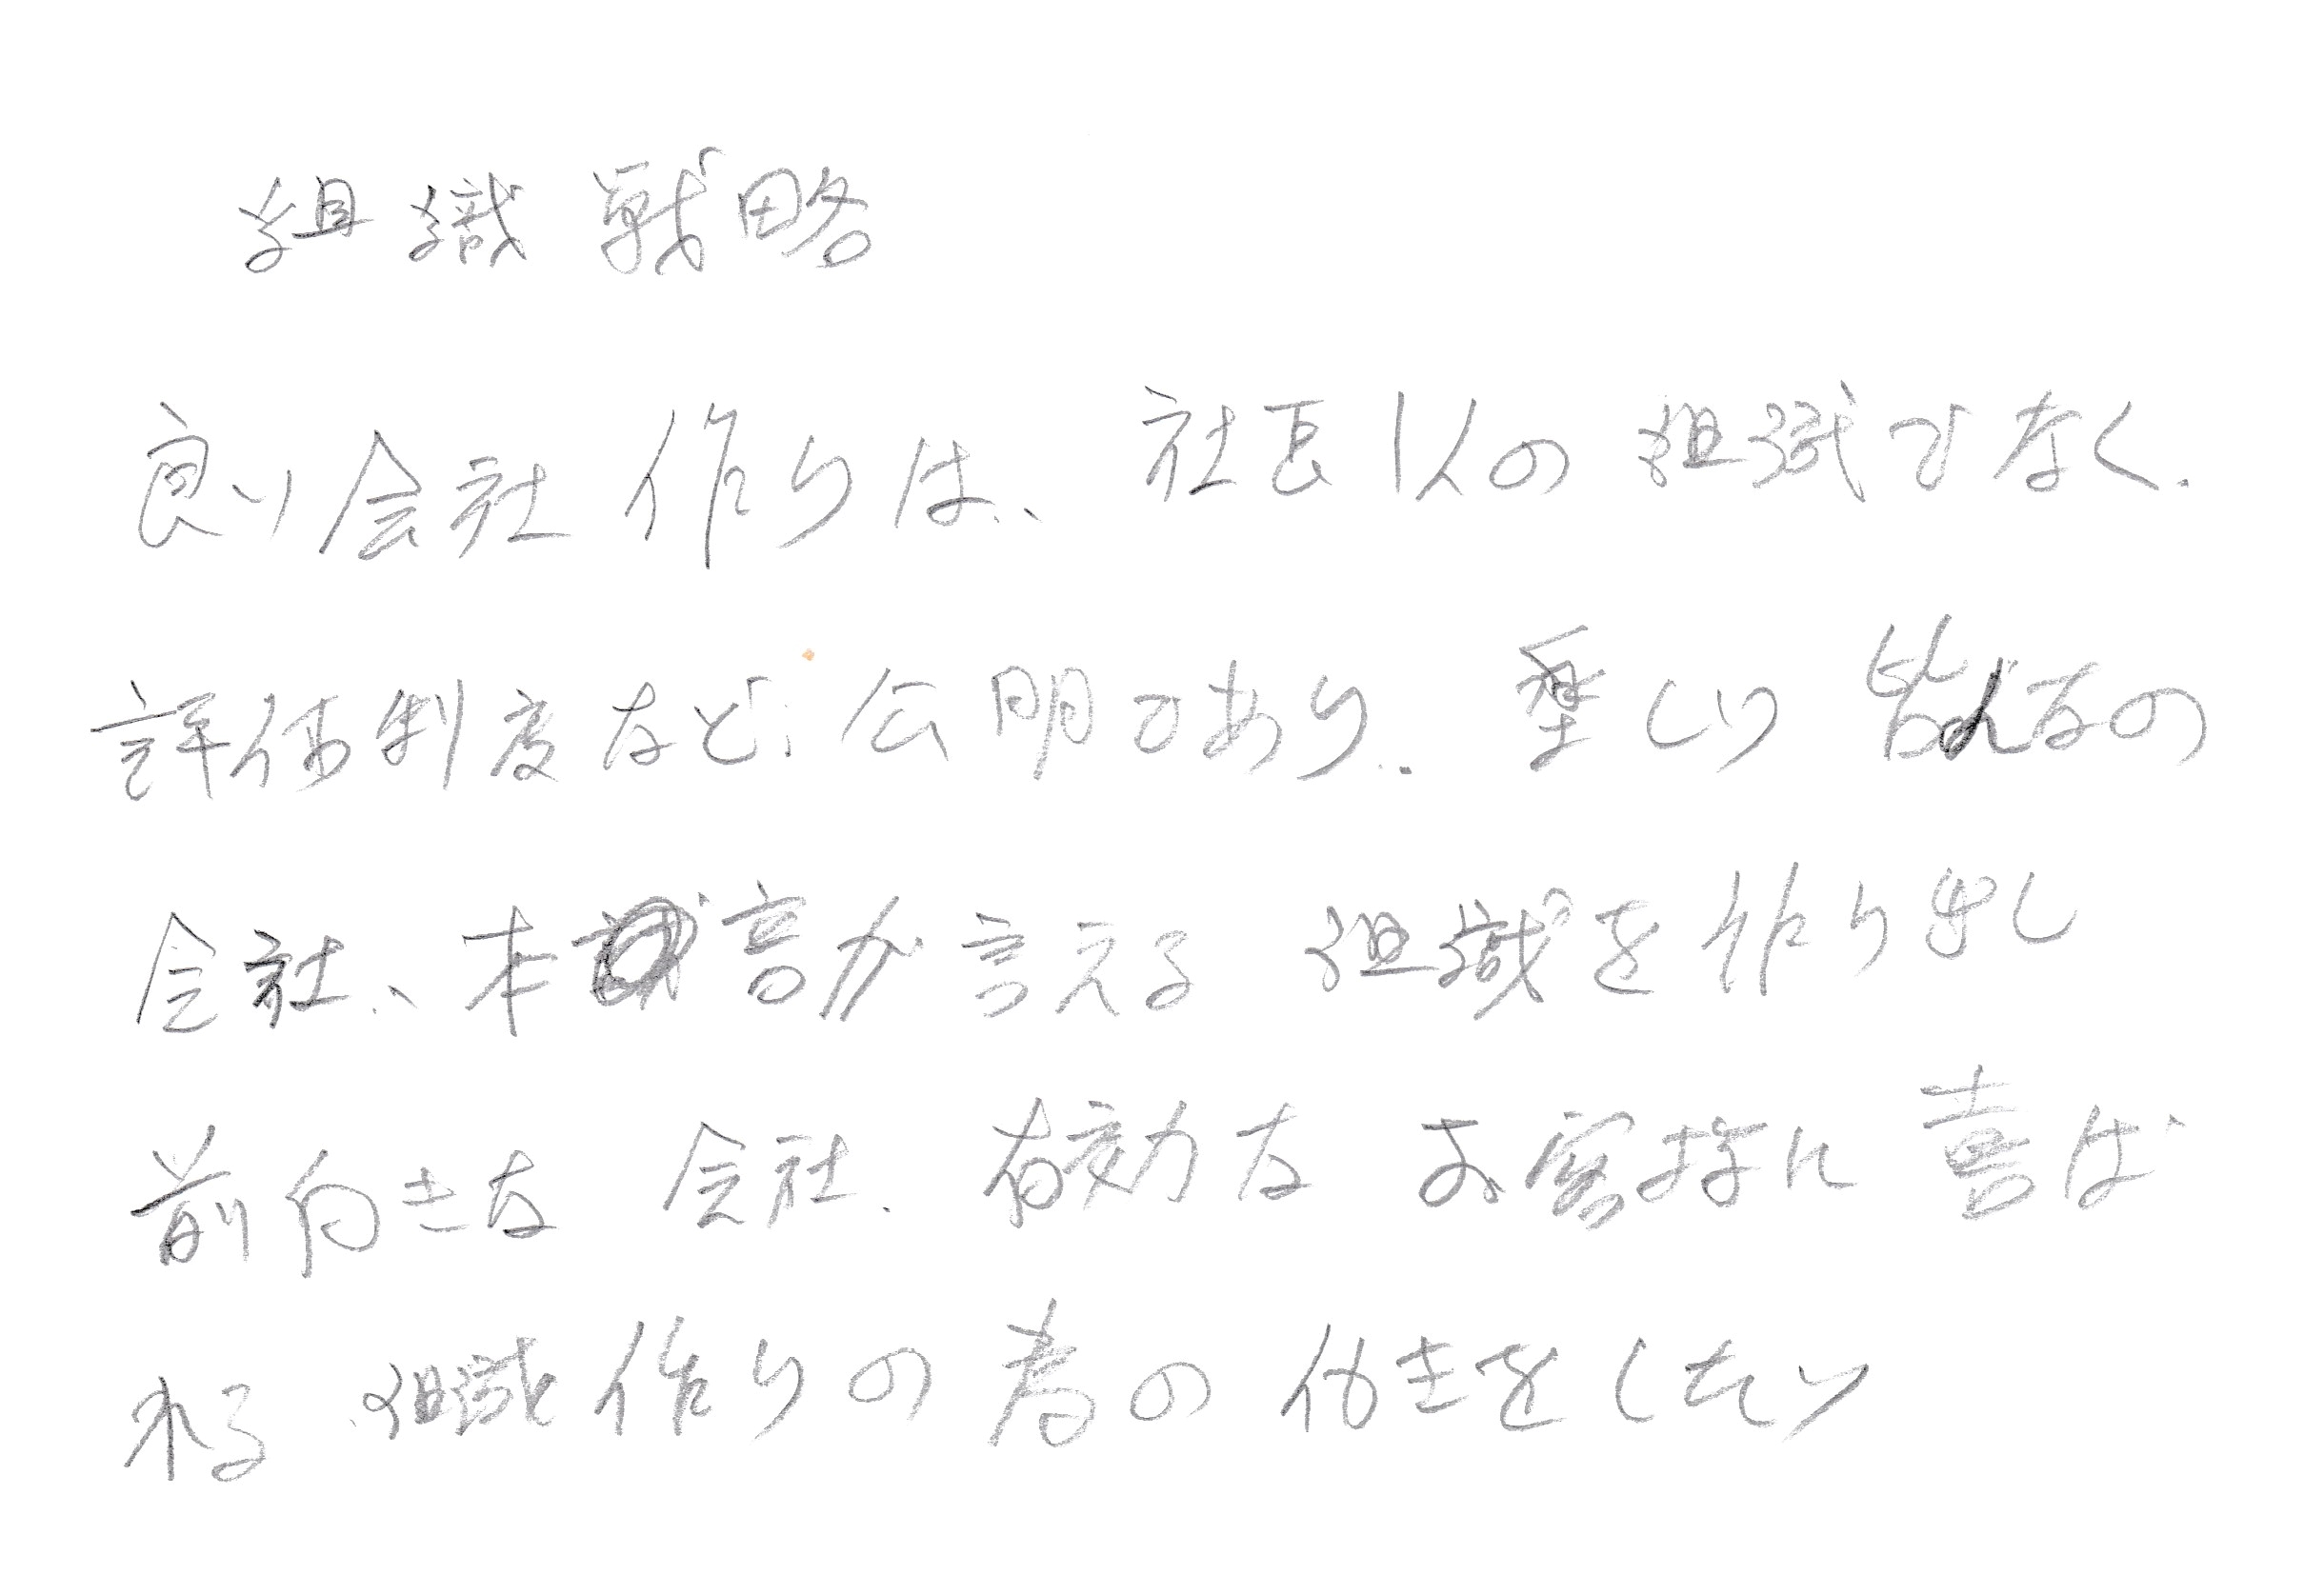 組織戦略
良い会社作りは、社長1人の組織でなく、
評価制度など、公明であり、楽しい皆んなの
会社、本音が言える組織を作り出し
前向きな会社、有効なお客様に喜ば
れる組織作りの為の仕事をしたい